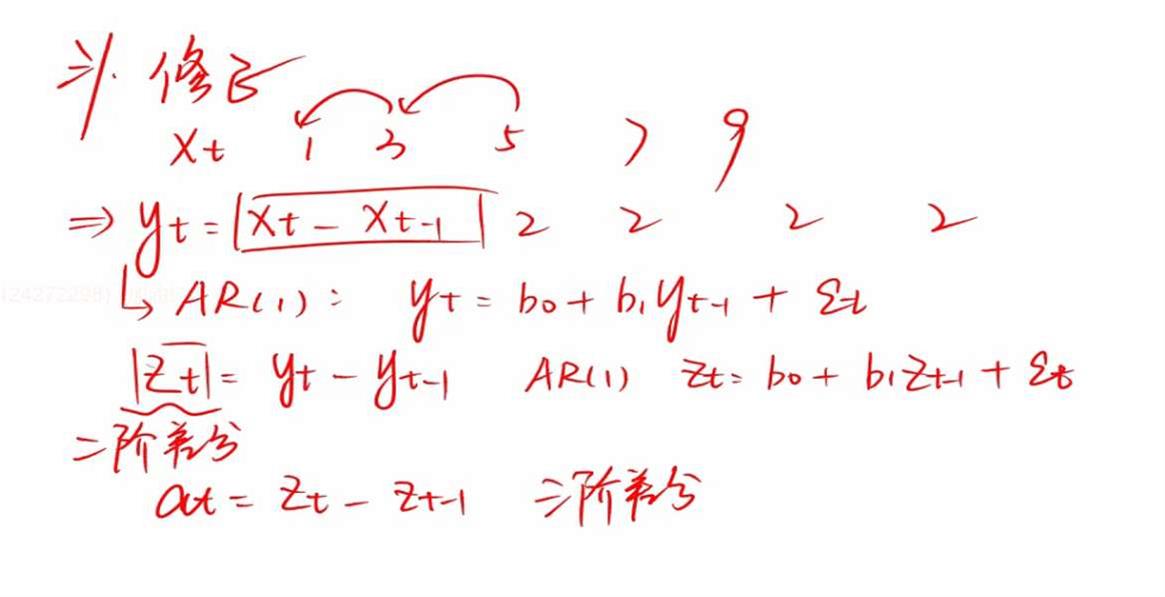 三、修正
Xt 1 3 5 7 9
⇒ yt = |Xt - Xt-1| 2 2 2 2
↳ AR(1): yt = b0 + b1yt-1 + εt
|Zt| = yt - yt-1 AR(1) Zt = b0 + b1Zt-1 + εt
二阶差分
at = Zt - Zt-1 三阶差分